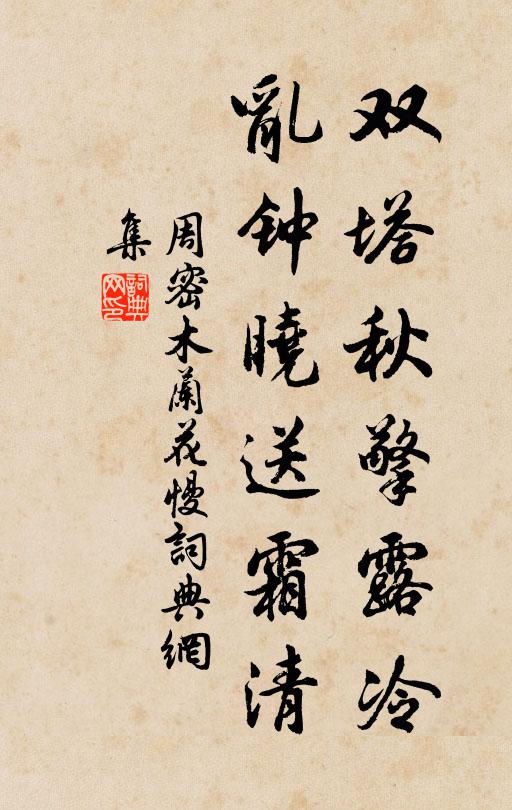 双塔秋擎露冷
亂钟曉送霜清
周密木蘭花慢詞典網
集
詞典
网印